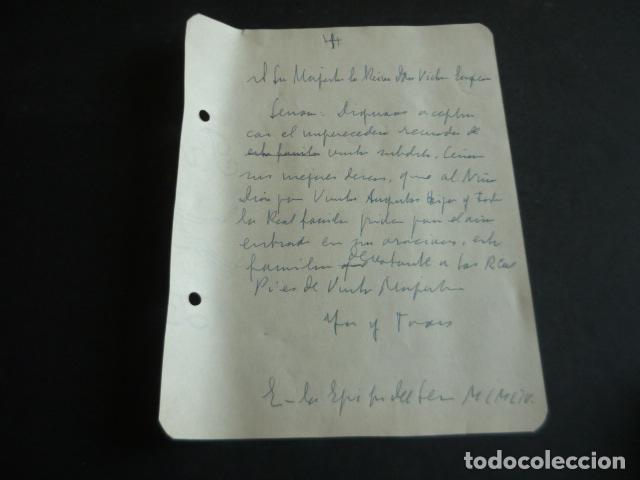 A Su Majestad la Reina Doña Victoria Eugenia
Señora: Dignaos aceptar
con el imperecedero recuerdo de
esta familia vuestra subdita,
sus mejores deseos, que al Niño
Dios por Vuestros Augustos Hijos y toda
la Real familia piden para el año
entrado en sus oraciones, esta
familia a los Reales
Pies de Vuestra Majestad
y
En la Epif del Señor MCMLIV.
todocoleccion.net